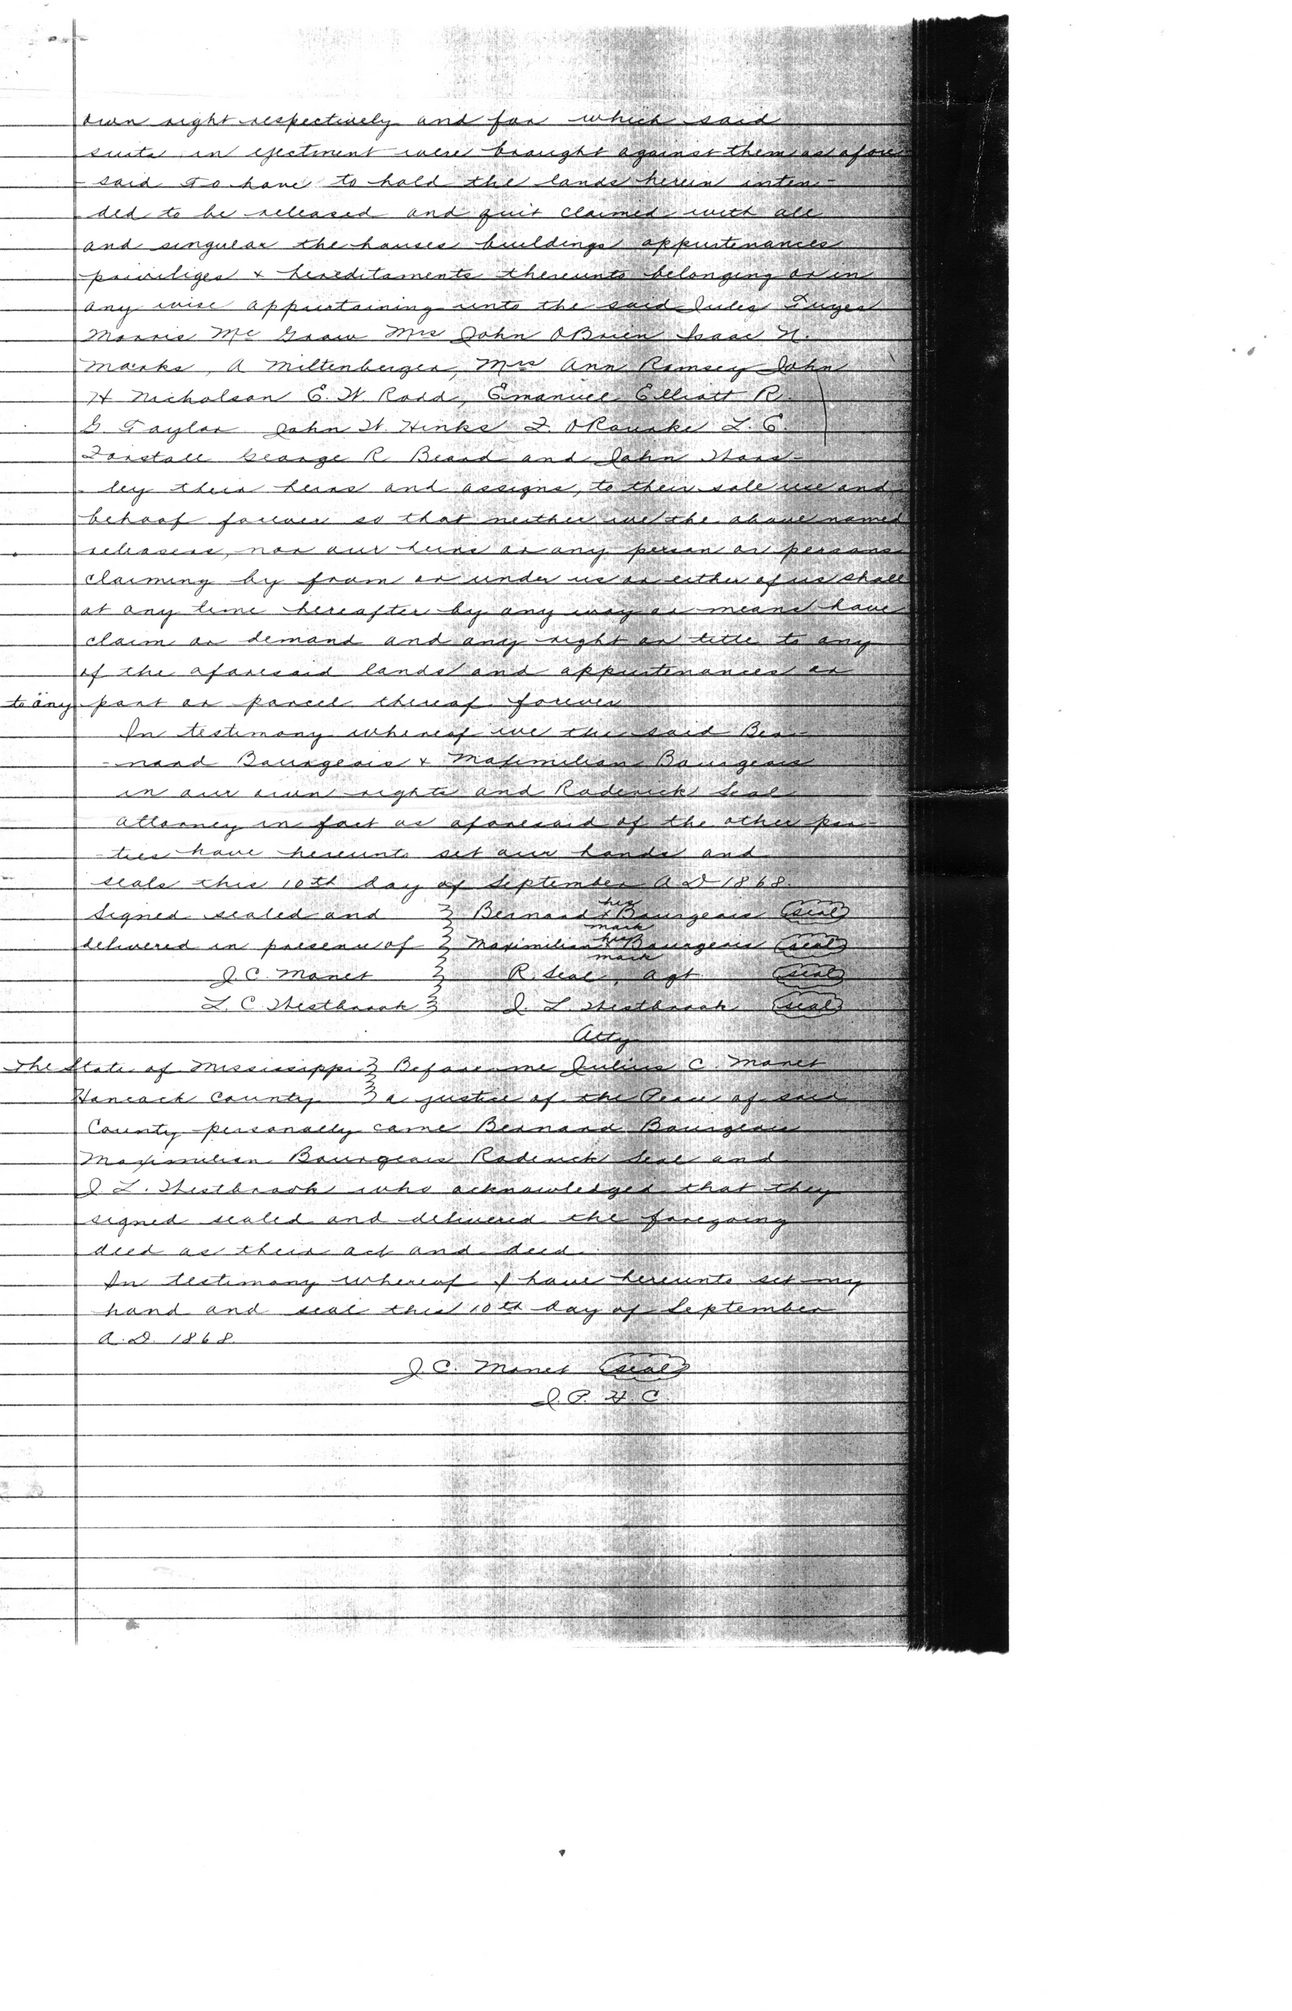 own right respectively and for which said
suits in ejectment were brought against them as afore-
- said To have to hold the lands herein inten-
ded to be released and quit claimed with all
and singular the houses buildings appurtenances
priviliges & hereditaments thereunto belonging or in
any wise appurtaining unto the said Jules
Morris Mc Graw Mrs John OBrien Isaac N.
Marks, A Miltenberger, Mrs Ann Ramsey John
H Nicholson E. W. Rodd, Emanuel Elliott R.
G Taylor John W. Hinks F. ORourke L. E.
Forstall George R Beard and John Thors-
- ley their heirs and assigns, to their sole use and
behoof forever so that neither we the above named
releasers, nor our heirs or any person or persons
claiming by from or under us or either of us shall
at any time hereafter by any way or means have
claim or demand and any right or title to any
of the aforesaid lands and appurtenances or
to any part or parcel thereof forever
In testimony whereof we the said Ber-
- nard Bourgeois & Maximilian Bourgeois
in our own rights and Roderick Seal
attorney in fact as aforesaid of the other par-
- ties have hereunto set our hands and
seals this 10th day of September A D 1868.
Signed sealed and Bernard his x mark Bourgeois seal
delivered in presence of Maximilian his x mark Bourgeois seal
J. C. Monet R. Seal, Agt seal
L. C. Westbrook J. L. Westbrook seal
Atty
The State of Mississippi Before me Julius C. Monet
Hancock County a justice of the Peace of said
County personally came Bernard Bourgeois
Maximilian Bourgeois Roderick Seal and
J L. Westbrook who acknowledged that they
signed sealed and delivered the foregoing
deed as their act and deed.
In testimony whereof I have hereunto set my
hand and seal this 10th day of September
A. D. 1868.
J. C. Monet seal
J. P. H. C.